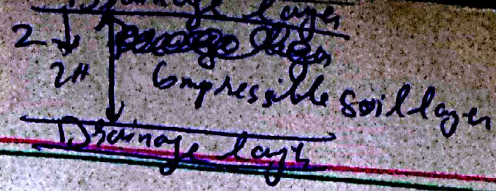 Drainage layer
Z
2H
Compressible soil layer
Drainage layer